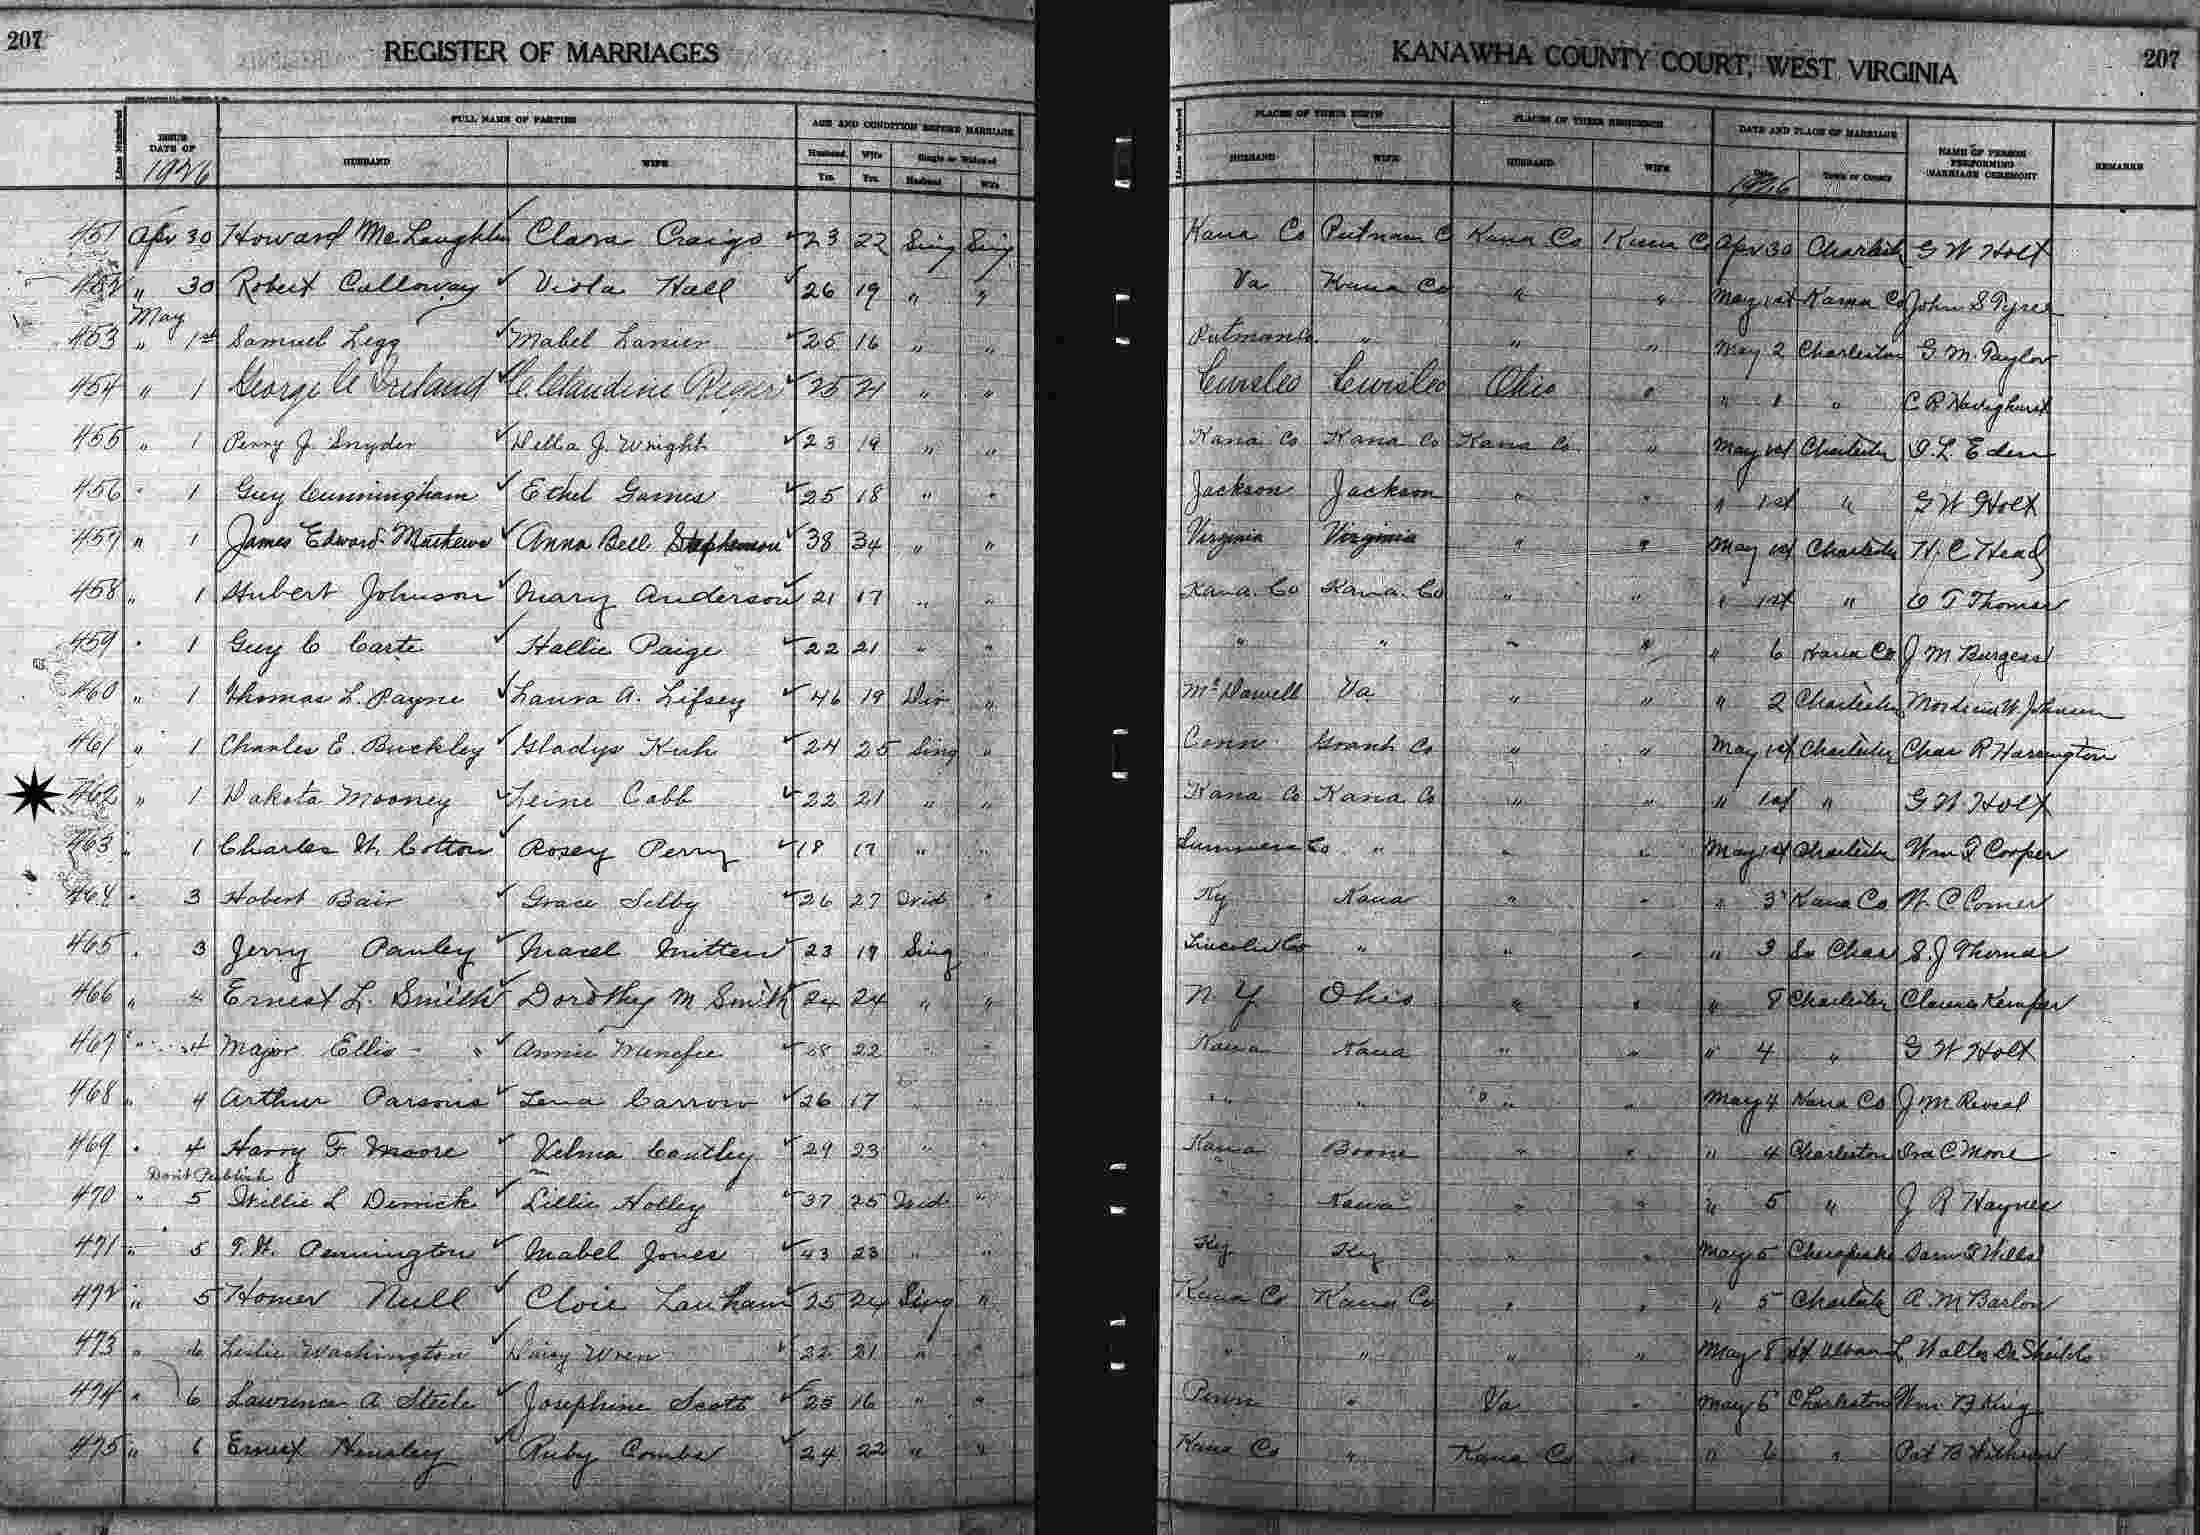 207
REGISTER OF MARRIAGES
KANAWHA COUNTY COURT, WEST VIRGINIA
207
Lines Numbered
ISSUE DATE OF
1926
FULL NAME OF PARTIES
HUSBAND
WIFE
AGE AND CONDITION BEFORE MARRIAGE
Husband Yrs.
Wife Yrs.
Single or Widowed
Husband
Wife
Lines Numbered
PLACES OF THEIR BIRTH
HUSBAND
WIFE
PLACES OF THEIR RESIDENCE
HUSBAND
WIFE
DATE AND PLACE OF MARRIAGE
Date
1926
TOWN OR COUNTY
NAME OF PERSON PERFORMING MARRIAGE CEREMONY
REMARKS
451 Apr 30 Howard McLaughlin Clara Craigo 23 22 Sing Sing Kana Co Putnam C Kana Co Kana Co Apr 30 G W Holt
452 " 30 Robert Calloway Viola Hall 26 19 " " Va Kana Co " " May 1st Kana Co John S Tyree
May
453 " 1st Samuel Legg Mabel Lanier 25 16 " " Putman Co. " " " May 2 Charleston G. M. Taylor
454 " 1 George A Ireland C. Claudine Reger 25 21 " " Ohio " " 1 " C R Havighurst
455 " 1 Perry J. Snyder Della J. Wright 23 19 " " Kana Co Kana Co Kana Co " May 1st O. L. Eden
456 " 1 Guy Cunningham Ethel Games 25 18 " " Jackson Jackson " " " 1st " G W Holt
457 " 1 James Edward Mathews Anna Bell Stephenson 38 34 " " Virginia Virginia " " May 1st H. C Head
458 " 1 Hubert Johnson Mary Anderson 21 17 " " Kana. Co Kana. Co " " " 1st " T Thomas
459 " 1 Guy C Carte Hallie Paige 22 21 " " " " " " " 6 Kana Co J M Burgess
460 " 1 Thomas L. Payne Laura A. Lifsey 46 19 Div " McDowell Va " " " 2 Mordecai W Johnson
461 " 1 Charles E. Buckley Gladys Kuh 24 25 Sing " Conn Grant Co " " May 1st Chas R Harrington
462 " 1 Dakota Mooney Leine Cobb 22 21 " " Kana Co Kana Co " " " 1st " G W Holt
463 " 1 Charles W. Cotton Rosey Perry 18 17 " " Summers Co " " " May 1st Wm F Cooper
464 " 3 Hobert Bair Grace Selby 26 27 Wid " Ky Kana " " " 3 Kana Co W. C. Comer
465 " 3 Jerry Pauley Macel Mitten 23 19 Sing " Lincoln Co " " " " 3 So Chas S. J Thomas
466 " 4 Ernest L. Smith Dorothy M Smith 24 24 " " N Y Ohio " " " 8 Clarence Kemper
467 " 4 Major Ellis Annie Menefee 22 " " Kana Kana " " " 4 " G W Holt
468 " 4 Arthur Parsons Lena Carrow 26 17 " " " " " " May 4 Kana Co J M Reveal
469 " 4 Harry F. Moore Velma Cantley 29 23 " " Kana Boone " " " 4 Charleston Ira C. Moore
Don't Publish
470 " 5 Willie L Derrick Lillie Holley 37 25 Wid " " Kana " " " 5 " J R Haynes
471 " 5 T. W. Pennington Mabel Jones 43 23 " " Ky Ky " " May 5 Chesapeake Sam T Wills
472 " 5 Homer Null Cloie Lanham 25 24 Sing " Kana Co Kana Co " " " 5 A. M Barlow
473 " 6 Leslie Washington Daisy Wren 22 21 " " " " " " May 8 St Albans L Walter
474 " 6 Lawrence A Steele Josephine Scott 25 16 " " Penn " Va " May 6 Charleston Wm B King
475 " 6 Ernest Hensley Ruby Combs 24 22 " " Kana Co " Kana Co " " 6 " Pat B Withrow